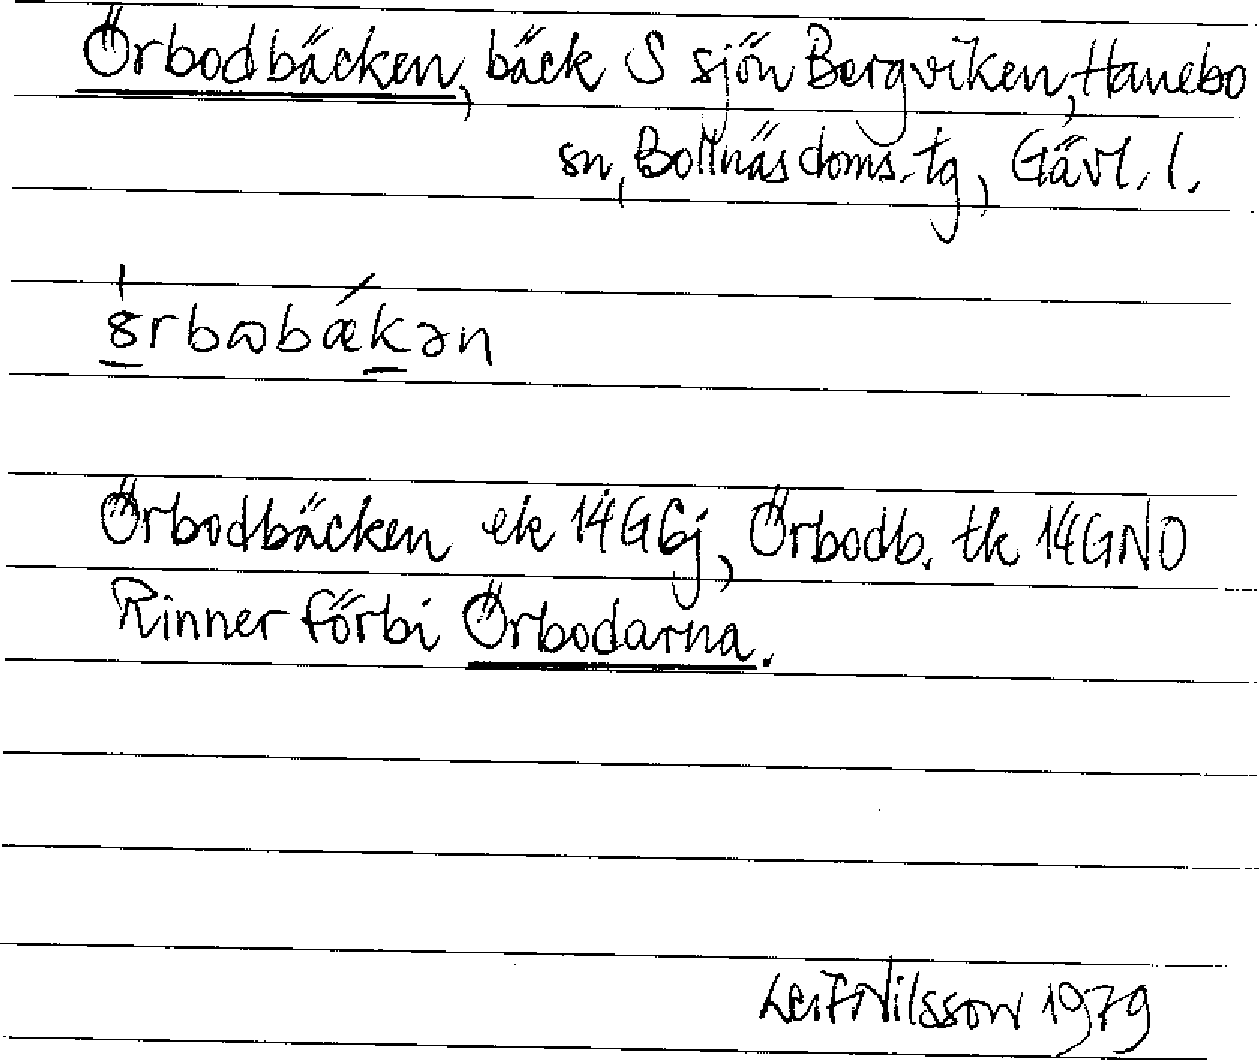 Örbodbäcken, bäck S sjön Bergviken, Hanebo
sn, Bollnäs doms.tg, Gävl. l.
Örbodbäcken ek 14G 6j, Örbodb. tk 14GNO
Rinner förbi Örbodarna.
Leif Nilsson 1979